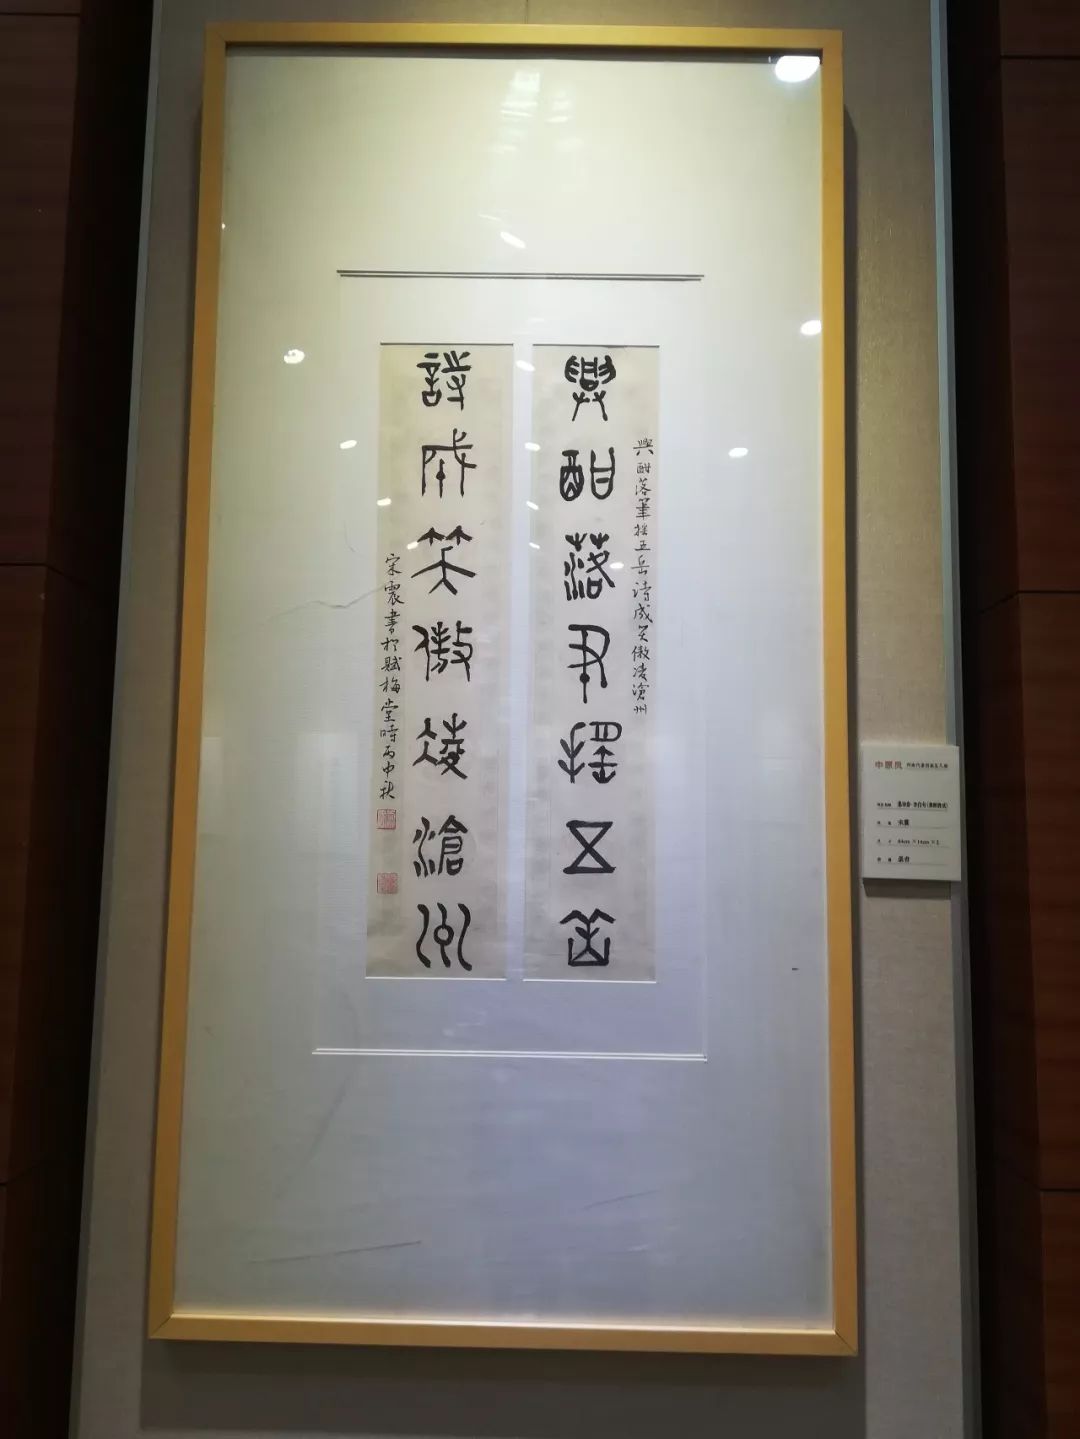 興酣落筆搖五岳
興酣落筆搖五岳詩成笑傲凌滄州
詩成笑傲凌滄州
宋震書於賦梅堂時丙申秋
中原風
宋震